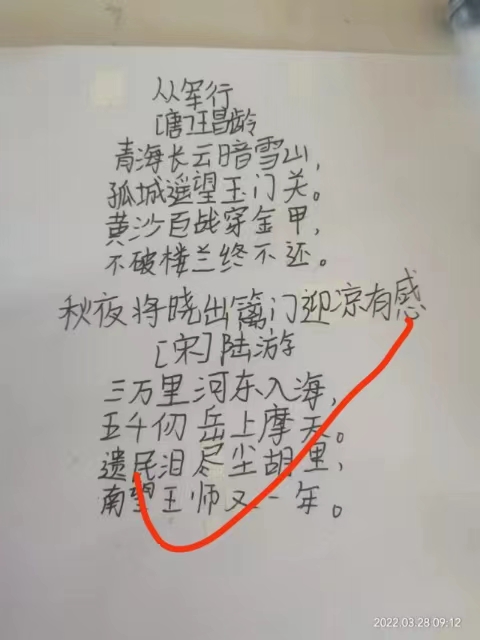 从军行
[唐]王昌龄
青海长云暗雪山，
孤城遥望玉门关。
黄沙百战穿金甲，
不破楼兰终不还。
秋夜将晓出篱门迎凉有感
[宋]陆游
三万里河东入海，
五千仞岳上摩天。
遗民泪尽尘胡里，
南望王师又一年。
2022.03.28 09:12